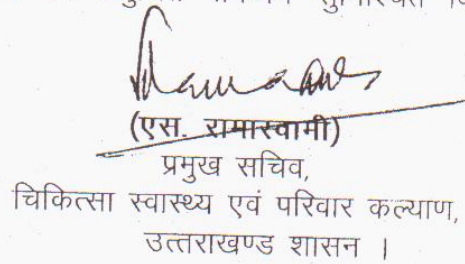 (एस. रामास्वामी)
प्रमुख सचिव,
चिकित्सा स्वास्थ्य एवं परिवार कल्याण,
उत्तराखण्ड शासन ।